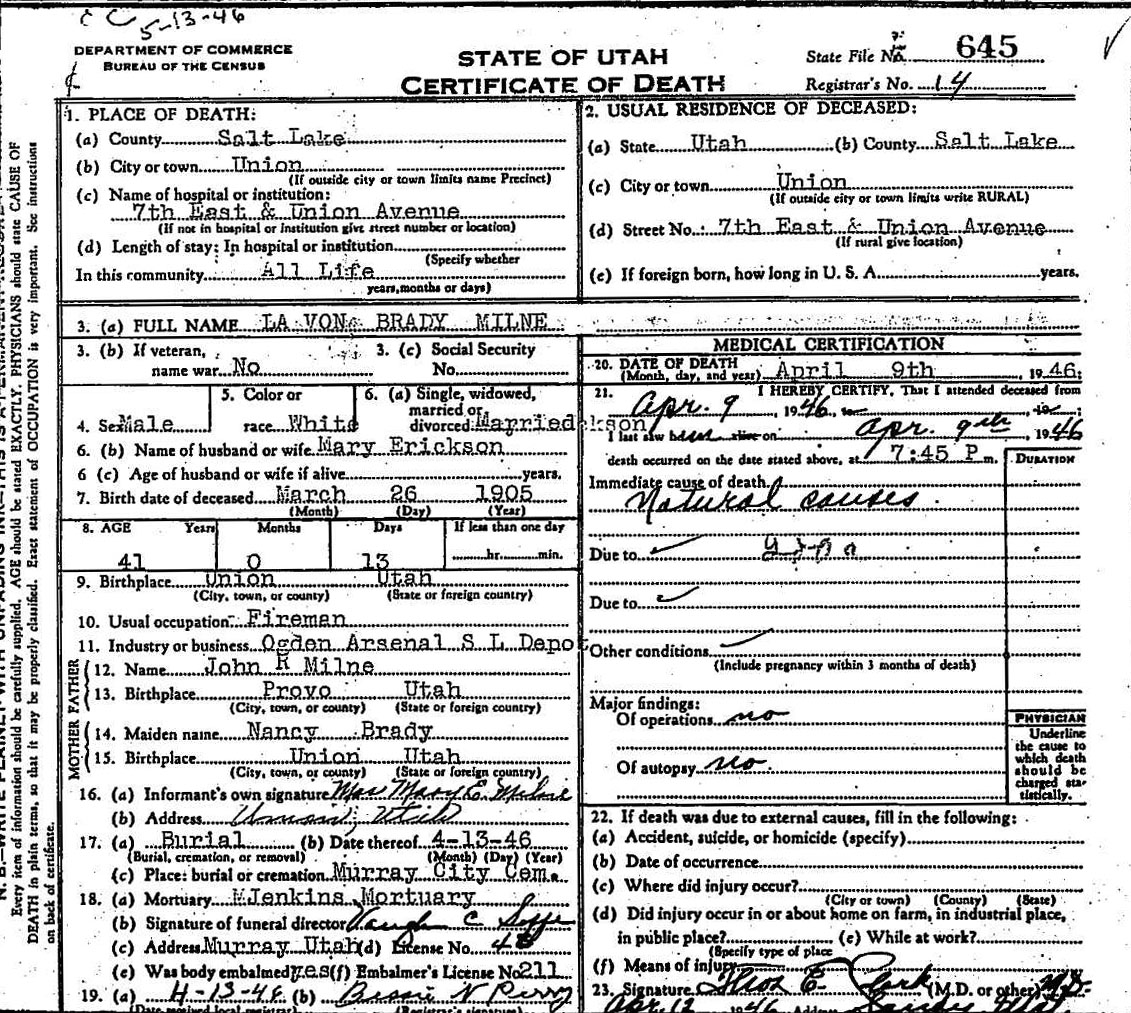 5-13-46
DEPARTMENT OF COMMERCE
BUREAU OF THE CENSUS
STATE OF UTAH
CERTIFICATE OF DEATH
State File No. 645
Registrar's No. 14
1. PLACE OF DEATH:
(a) County Salt Lake
(b) City or town Union
(If outside city or town limits name Precinct)
(c) Name of hospital or institution:
7th East & Union Avenue
(If not in hospital or institution give street number or location)
(d) Length of stay: In hospital or institution
(Specify whether
In this community All Life
years, months or days)
2. USUAL RESIDENCE OF DECEASED:
(a) State Utah (b) County Salt Lake
(c) City or town Union
(If outside city or town limits write RURAL)
(d) Street No. 7th East & Union Avenue
(If rural give location)
(e) If foreign born, how long in U. S. A. years.
3. (a) FULL NAME LA VON BRADY MILNE
3. (b) If veteran, name war No
3. (c) Social Security No.
4. Sex Male
5. Color or race White
6. (a) Single, widowed, married or divorced Married
6. (b) Name of husband or wife Mary Erickson
6 (c) Age of husband or wife if alive years.
7. Birth date of deceased March 26 1905
(Month) (Day) (Year)
8. AGE Years Months Days If less than one day
41 0 13 hr. min.
9. Birthplace Union Utah
(City, town, or county) (State or foreign country)
10. Usual occupation Fireman
11. Industry or business Ogden Arsenal S L Depot
FATHER
12. Name John R Milne
13. Birthplace Provo Utah
(City, town, or county) (State or foreign country)
MOTHER
14. Maiden name Nancy Brady
15. Birthplace Union Utah
(City, town, or county) (State or foreign country)
16. (a) Informant's own signature Mrs Mary E. Milne
(b) Address Utah
17. (a) Burial (b) Date thereof 4-13-46
(Burial, cremation, or removal) (Month) (Day) (Year)
(c) Place: burial or cremation Murray City Cem.
18. (a) Mortuary Jenkins Mortuary
(b) Signature of funeral director Vaughn C
(c) Address Murray Utah (d) License No.
(e) Was body embalmed yes (f) Embalmer's License No 211
19. (a) 4-13-46 (b) Bessie N Perry
(Date received local registrar) (Registrar's signature)
MEDICAL CERTIFICATION
20. DATE OF DEATH
(Month, day, and year) April 9th, 1946;
21. I HEREBY CERTIFY, That I attended deceased from
Apr. 9, 1946, to , 19
I last saw him alive on Apr. 9th, 1946
death occurred on the date stated above, at 7:45 P m.
DURATION
Immediate cause of death
Natural causes
Due to
Due to
Other conditions
(Include pregnancy within 3 months of death)
Major findings:
Of operations no
Of autopsy no.
PHYSICIAN
Underline
the cause to
which death
should be
charged sta-
tistically.
22. If death was due to external causes, fill in the following:
(a) Accident, suicide, or homicide (specify)
(b) Date of occurrence
(c) Where did injury occur?
(City or town) (County) (State)
(d) Did injury occur in or about home on farm, in industrial place,
in public place? (e) While at work?
(Specify type of place
(f) Means of injury
23. Signature E. Clark (M.D. or other) M.D.
Every item of information should be carefully supplied. AGE should be stated EXACTLY. PHYSICIANS should state CAUSE OF
DEATH in plain terms, so that it may be properly classified. Exact statement of OCCUPATION is very important. See instructions
on back of certificate.